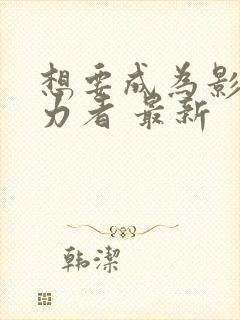 想要成為影
力者 最新
韩潔